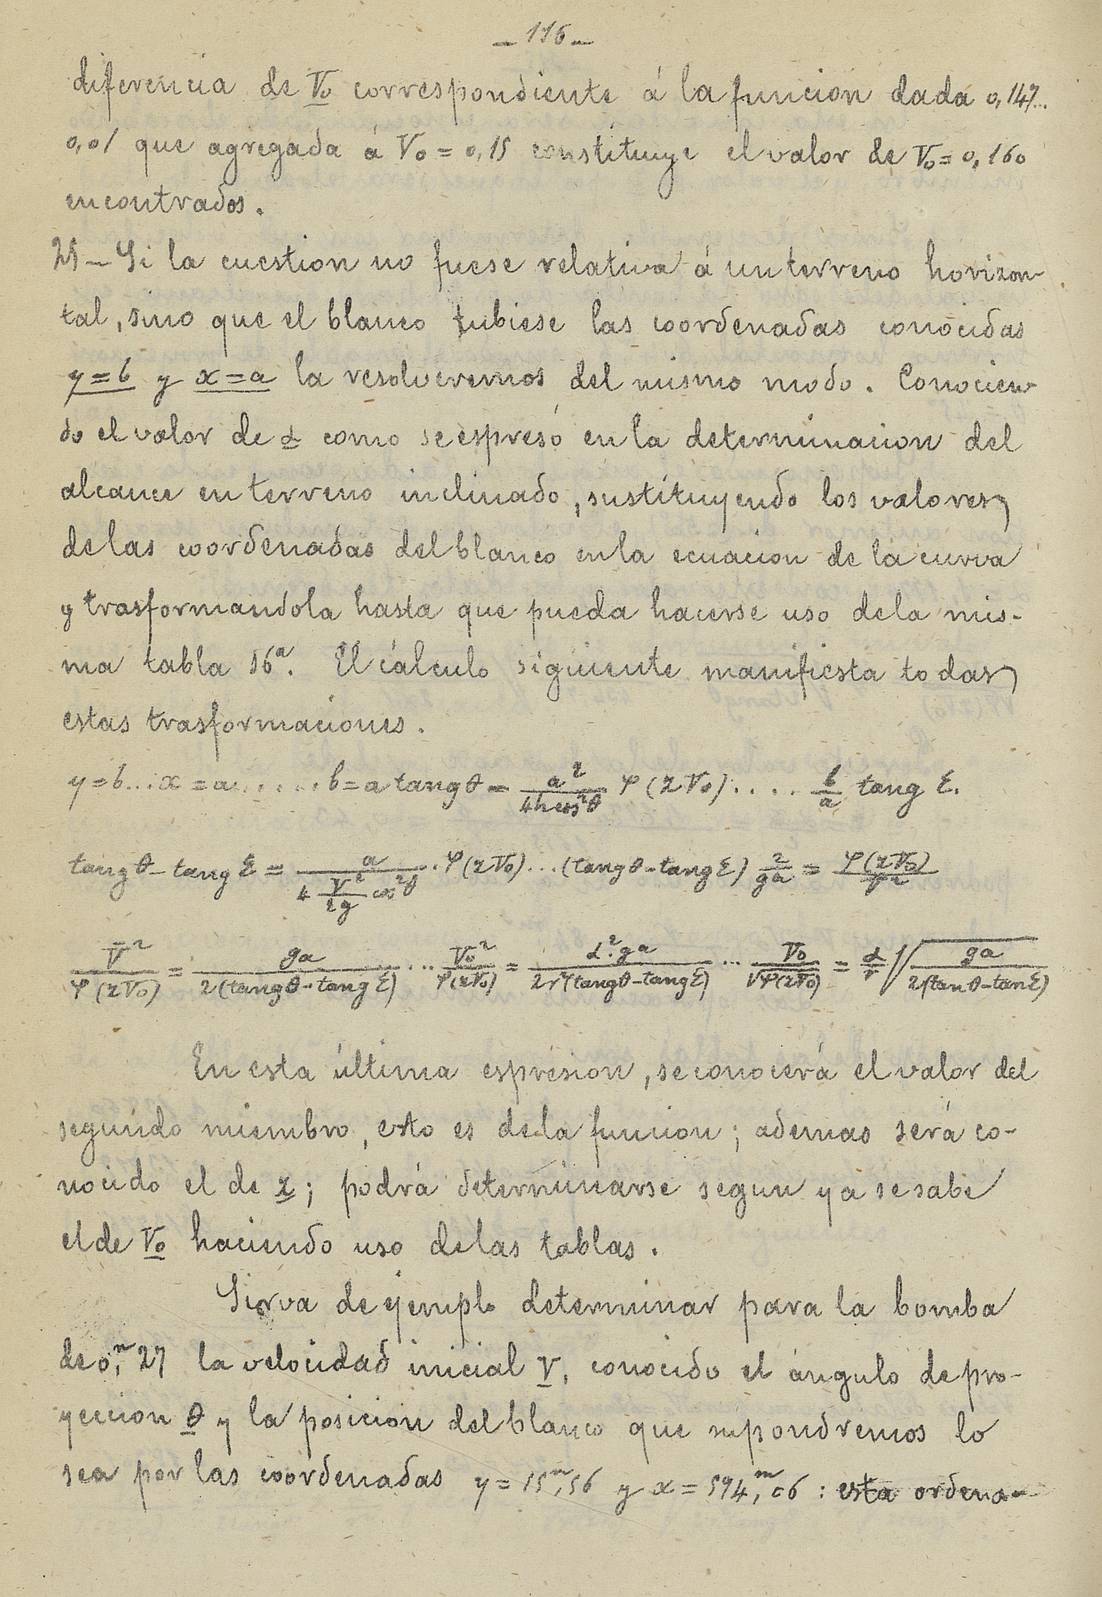 - 116 -
diferencia de V₀ correspondiente á la funcion dada 0,147..
0,01 que agregada á V₀ = 0,15 constituye el valor de V₀ = 0,160
encontrados.
25 - Si la cuestion no fuese relativa á un terreno horizon-
tal, sino que el blanco tubiese las coordenadas conocidas
y = b y x = a la resolveremos del mismo modo. Conocien-
do el valor de α como se espresó en la determinacion del
alcance en terreno inclinado, sustituyendo los valores
de las coordenadas del blanco en la ecuacion de la curva
y trasformandola hasta que pueda hacerse uso de la mis-
ma tabla 16ª. El cálculo siguiente manifiesta todas
estas trasformaciones.
y = b...x = a......b = a tang θ - a²/(4h cos²θ) φ(z V₀).... b/a tang ε.
tang θ - tang ε = a/(4 V²/2g cos²θ) . φ(z V₀)...(tang θ - tang ε) 2/ga = φ(z V₀)/V²
V²/φ(z V₀) = ga/2(tang θ - tang ε) ... V₀²/φ(z V₀) = α².ga/2r²(tang θ - tang ε) ... V₀/√φ(z V₀) = α/r √(ga/2(tan θ - tan ε))
En esta última espresion, se conocerá el valor del
segundo miembro, esto es de la funcion; ademas será co-
nocido el de z; podrá determinarse segun ya se sabe
el de V₀ haciendo uso de las tablas.
Sirva de ejemplo determinar para la bomba
de 0,ᵐ27 la velocidad inicial V, conocido el ángulo de pro-
yeccion θ y la posicion del blanco que supondremos lo
sea por las coordenadas y = 15ᵐ,56 y x = 594,ᵐ06 : esta ordena-